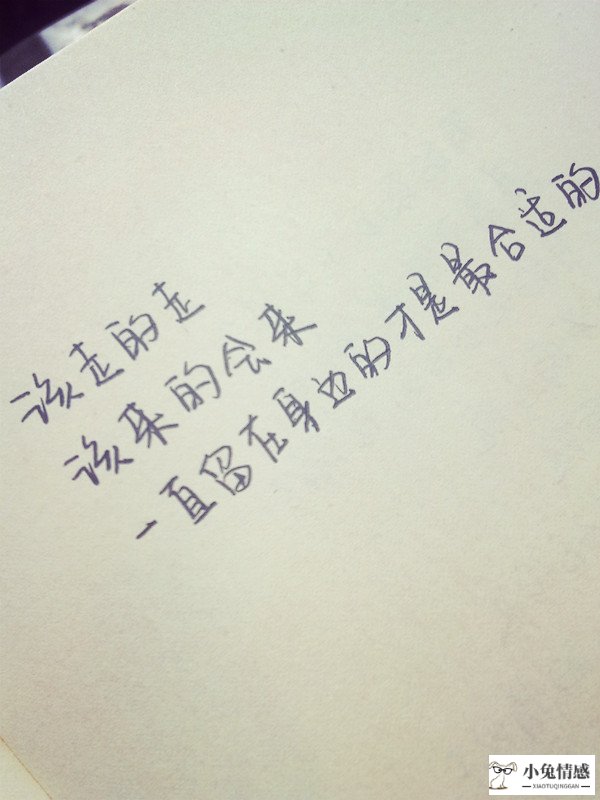 该走的走
该来的会来
一直留在身边的才是最合适的
小兔情感
XIAOTUQINGGAN